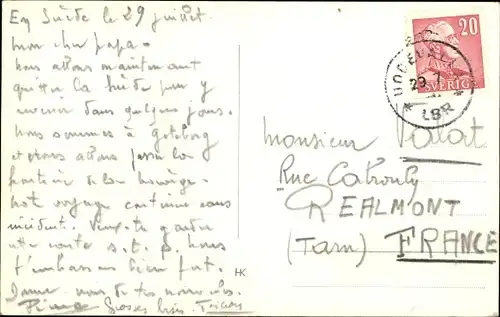 En Suède le 29 juillet.
mon cher papa.
nous allons maintenant
quitter la Suède pour y
revenir dans quelques jours.
Nous sommes à Goteborg
et nous allons passer la
frontière de la Norvège.
Not voyage continue sans
incident. Veux-tu garder
cette carte s. t. p. nous
t'embrassons bien fort.
Donne nous de tes nouvelles.
Grosses bises.
HK
20
SVERIGE
UDDEVALLA
29.7
LBR
Monsieur Vallat
Rue
REALMONT
(Tarn) FRANCE